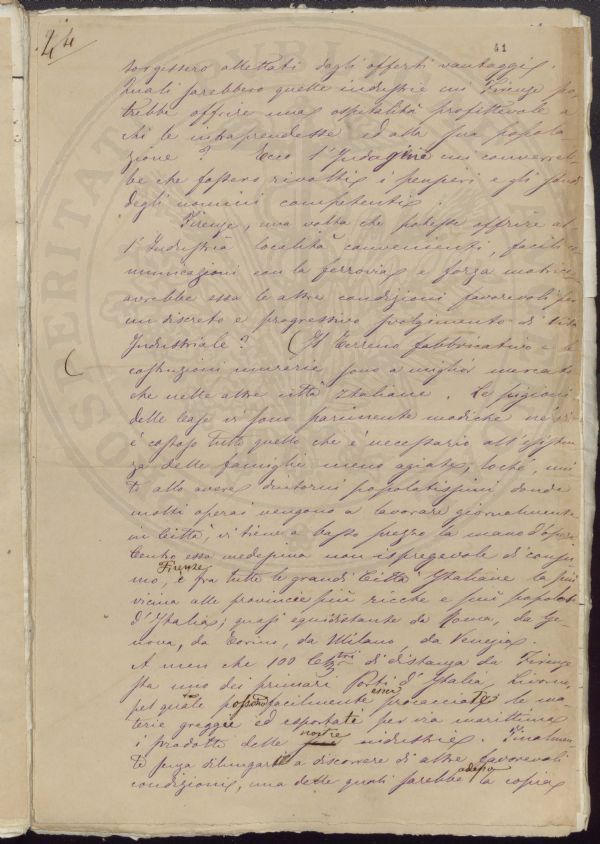 44
41
sorgessero allettati dagli offerti vantaggi.
Quali sarebbero quelle industrie cui Firenze po-
trebbe offrire una ospitalità profittevole a
chi le intraprendesse ed alla sua popola
zione? Ecco l'Indagine cui converreb-
be che fossero rivolti i pensieri e gli studi
degli uomini competenti.
Firenze, una volta che potesse offrire al
l'Industria località convenienti, facili co-
municazioni con la ferrovia e forza motrice
avrebbe essa le altre condizioni favorevoli per
un discreto e progressivo svolgimento di vita
Industriale? (Il terreno fabbricativo e le
costruzioni murarie sono a miglior mercato
che nelle altre città Italiane. Le pigioni
delle Case vi sono parimente modiche nè vi
è costoso tutto quello che è necessario all'esisten
za delle famiglie meno agiate, loché, uni
to allo avere dintorni popolatissimi donde
molti operai vengono a lavorare giornalmente
in Città, vi tiene a basso prezzo la mano d'opera
Centro essa medesima non ispregevole di consu
mo, Firenze è fra tutte le grandi Città Italiane la più
vicina alle provincie più ricche e più popolate
d'Italia; quasi equidistante da Roma, da Ge-
nova, da Torino, da Milano, da Venezia.
A men che 100 Chtri di distanza da Firenze
sta uno dei primari Porti d'Italia, Livorno,
pel quale possono facilmente esser procacciate le ma-
terie greggie ed esportati per via marittima
i prodotti delle nostre industrie. Finalmen
te senza dilungarci a discorrere di altre favorevoli
condizioni, una delle quali sarebbe adesso la copia